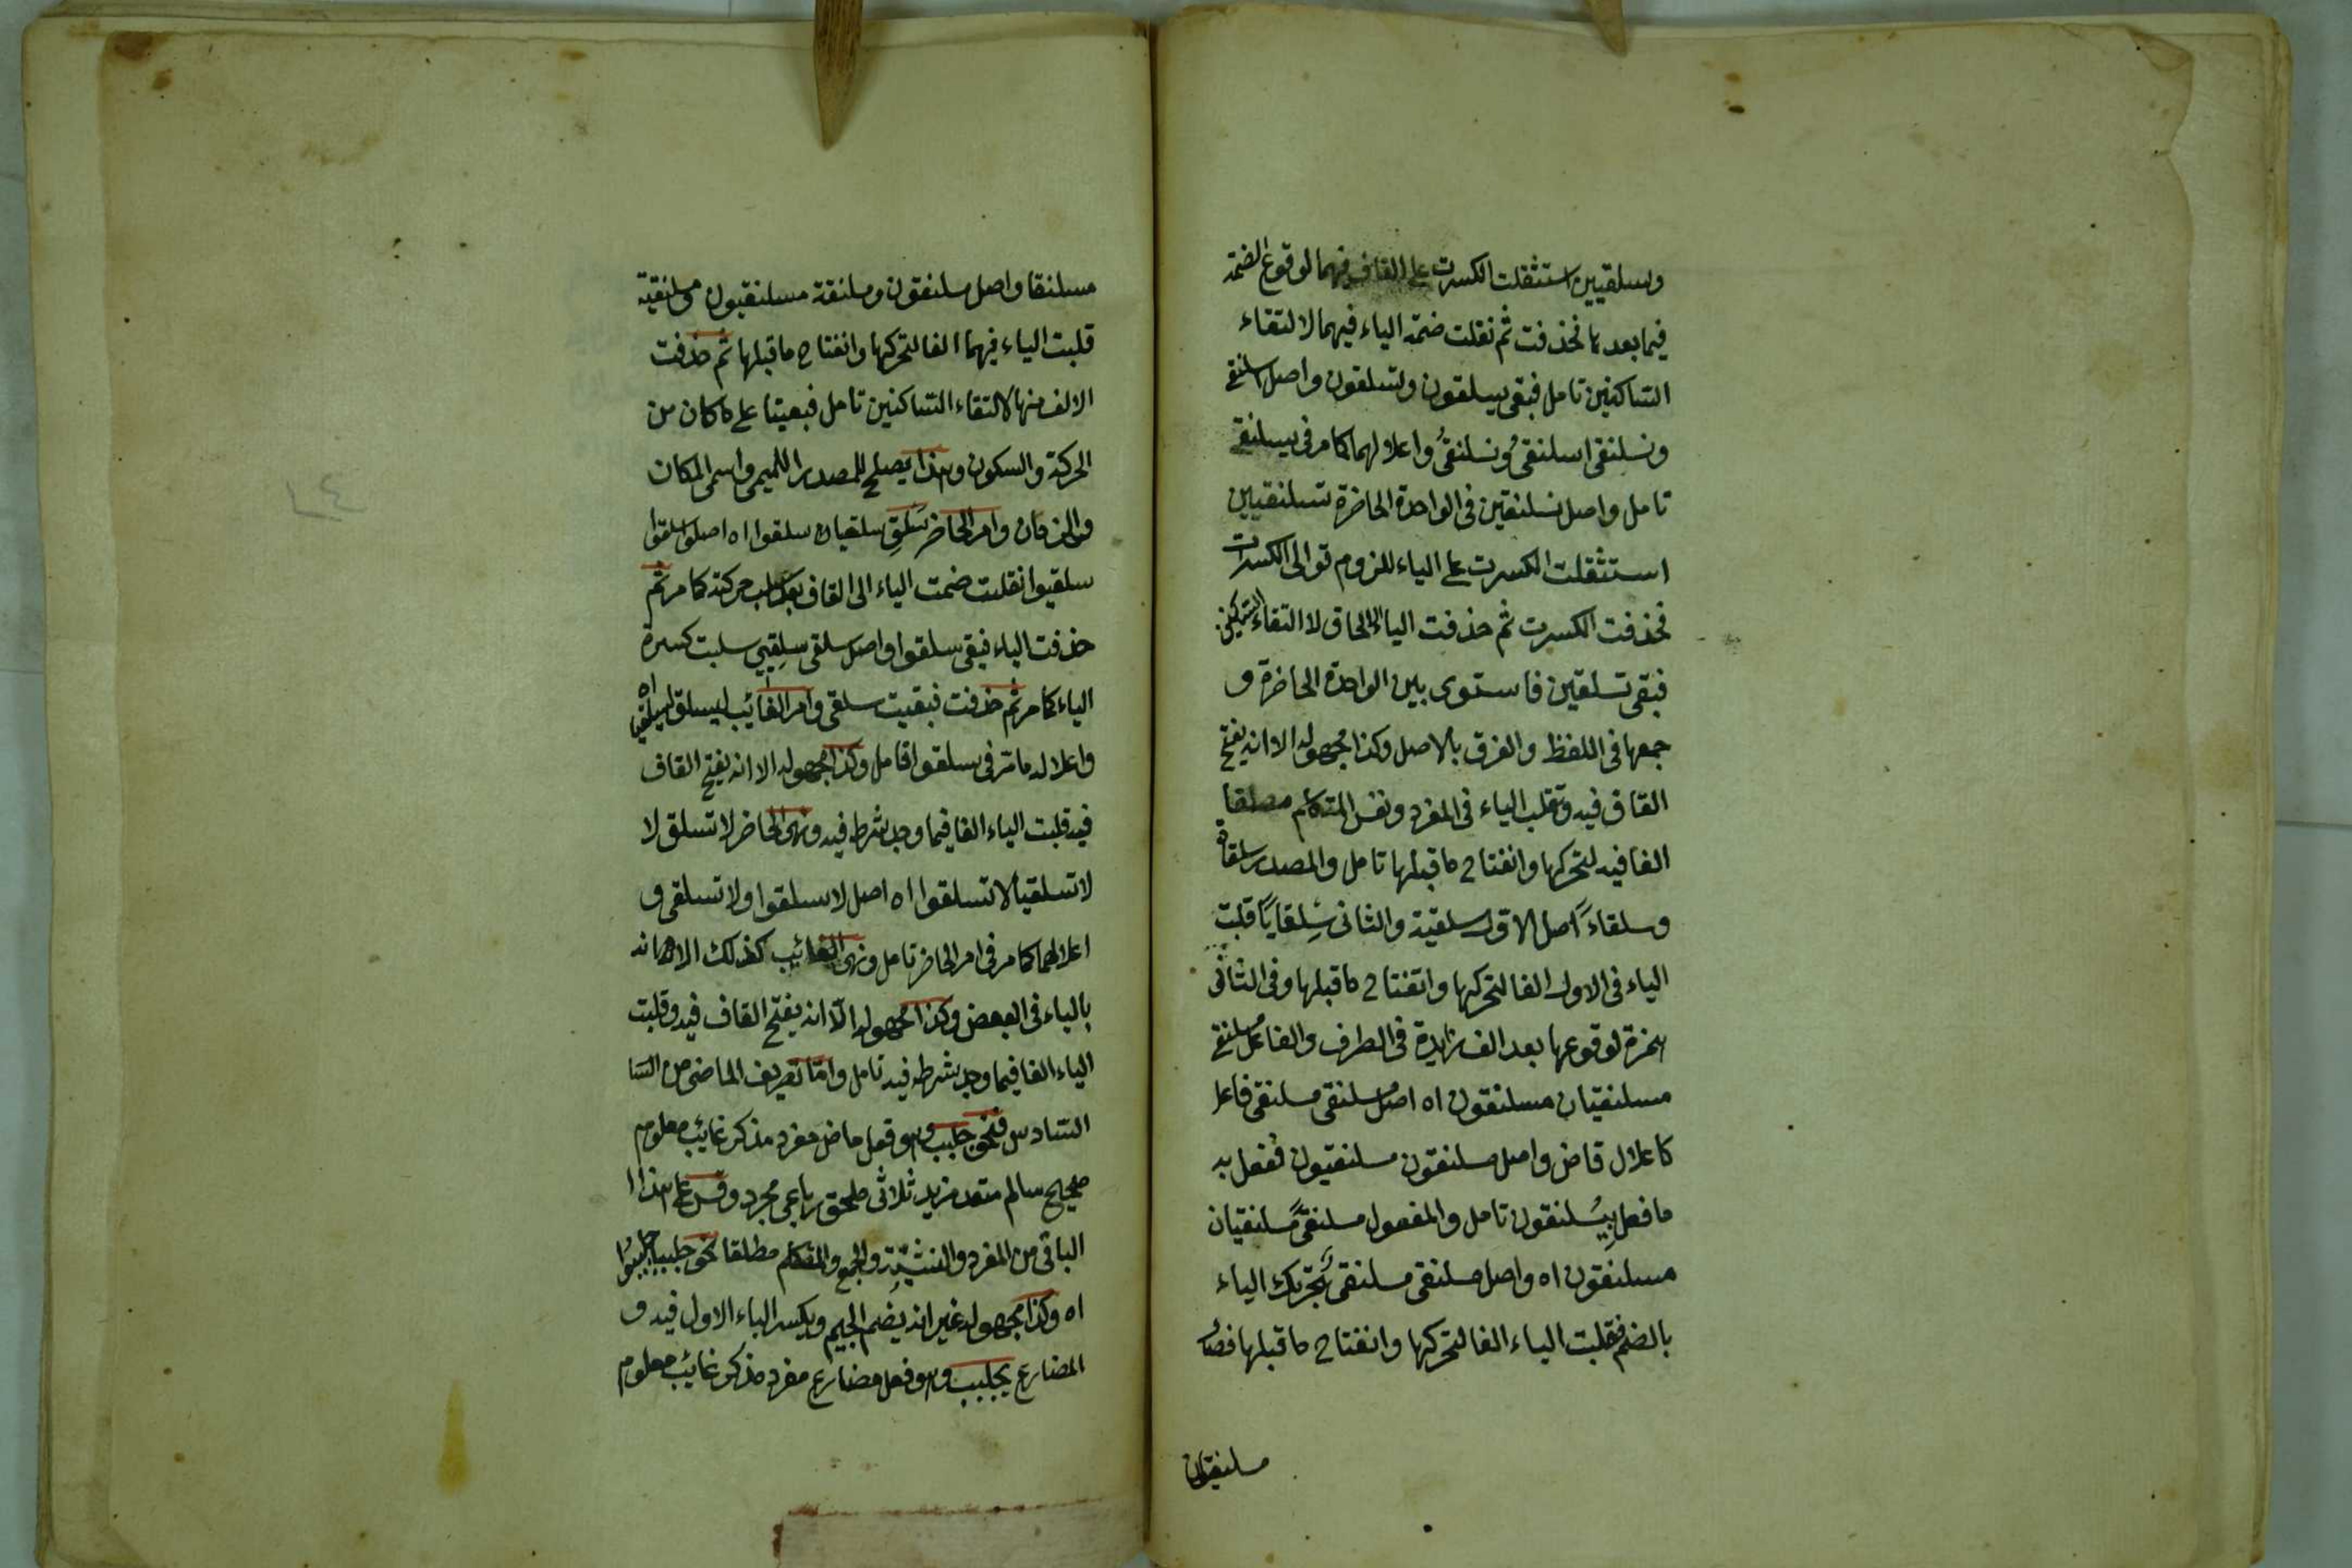 ويسلقيين استثقلت الكسرت على القاف فيهما لوقوع الضمة
فيما بعدها فحذفت ثم نقلت ضمة الياء فيهما لالتقاء
الساكنين تامل فبقى يسلقون وتسلقون واصل اسلنقى
ونسلنقى اسلنقىُ ونسلنقىُ واعلالهما كما مر فى يسلنقى
تامل واصل تسلنقين فى الواحدة الحاضرة تسلنقيين
استثقلت الكسرت على الياء للزوم توالى الكسرات
فحذفت الكسرت ثم حذفت الياء الالحاق لا التقاء الساكنين
فبقى تسلقين فاستوى بين الواحدة الحاضرة و
جمعها فى اللفظ والفرق بالاصل وكذا مجهوله الا انه يفتح
القاف فيه وتقلب الياء فى المفرد ونفس المتكلم مطلقا
الفا فيه لتحركها وانفتاح ما قبلها تامل والمصدر سلقاة
وسلقاءً اصل الاول سلقية والثانى سِلقايًا قلبت
الياء فى الاول الفا لتحركها وانفتاح ما قبلها وفى الثانى
همزة لوقوعها بعد الف زايدة فى الطرف والفاعل مسلنقى
مسلنقيان مسلنقون اه اصل مسلنقى مسلنقى فاعل
كاعلال قاض واصل مسلنقون مسلنقيون ففعل به
ما فعل بِيُسلنقون تامل والمفعول مسلنقىً مسلنقيان
مسلنقون اه واصل مسلنقى مسلنقى بتحريك الياء
بالضم فقلبت الياء الفا لتحركها وانفتاح ما قبلها فصار
مسلنقيان
مسلنقا واصل مسلنقون ومسلنقة مسلنقيون ومسلنقية
قلبت الياء فيهما الفا لتحركها وانفتاح ما قبلها ثم حذفت
الالف منها لالتقاء الساكنين تامل فبقيتا على ما كان من
الحركة والسكون وهذا يصلح للمصدر الميمى واسمى المكان
والزمان وامر الحاضر سَلقِ سلقيان سلقوا اه اصل سلقوا
سلقيوا نقلت ضمت الياء الى القاف بعد سلب حركته كما مر ثم
حذفت الياء فبقى سلقوا واصل سلقى سلِقيى سلبت كسرة
الياء كما مر ثم حذفت فبقيت سلقى وامر الغائب ليسلق ليسلقيا اه
واعلاله ما مر فى سلقوا تامل وكذا مجهوله الا انه يفتح القاف
فيه قلبت الياء الفا فيما وجد شرطه فيه ونهى الحاضر لا تسلق لا
لا تسلقيا لا تسلقوا اه اصل لا تسلقوا ولا تسلقى و
اعلالهما كما مر فى امر الحاضر تامل ونهى الغائب كذلك الا انه
بالياء فى البعض وكذا مجهوله الا انه يفتح القاف فيه وقلبت
الياء الفا فيما وجد شرطه فيه تامل واما تعريف الماضى من البا
السادس فنحو جلبب وهو فعل ماض مفرد مذكر غائب معلوم
صحيح سالم متعد مزيد ثلاثى ملحق رباعى مجرد وقس على هذا
الباقى من المفرد والتثنيةِ والجمع والمتكلم مطلقا نحو جلببا جلببوا
اه وكذا مجهوله غير انه يضم الجيم ويكسر الباء الاول فيه و
المضارع يجلبب وهو فعل مضارع مفرد مذكر غائب معلوم